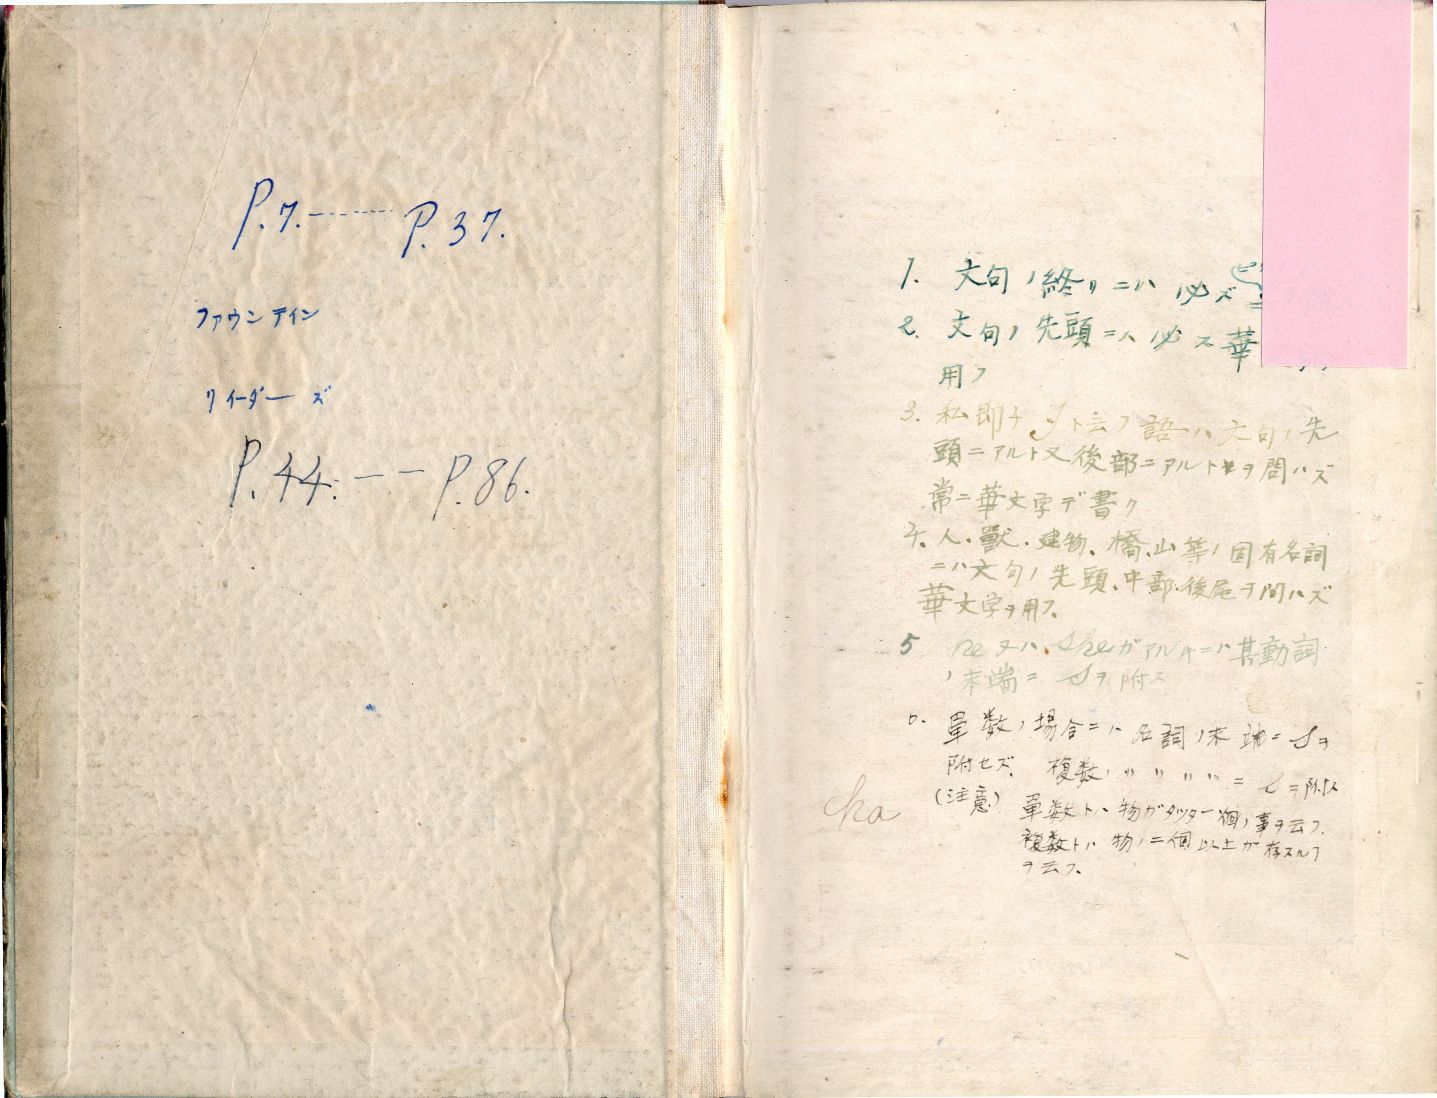 P.7. ------ P.37.
ファウンテイン
リイーダーズ
P.44. — — P.86.
1. 文句ノ終リニハ必ズ
2. 文句ノ先頭ニハ必ズ華
用フ
3. 私即チIト云フ語ハ文句ノ先
頭ニアルト又後部ニアルトヲ問ハズ
常ニ華文字デ書ク
4. 人、獣、建物、橋、山等ノ固有名詞
ニハ文句ノ先頭、中部、後尾ヲ問ハズ
華文字ヲ用フ。
5 he又ハ、sheガアル時ニハ其動詞
ノ末端ニsヲ附ス
6. 單数ノ場合ニハ名詞ノ末端ニsヲ
附セズ、複数ノ〃〃〃〃〃ニsヲ附ス
(注意) 單数トハ物ガタッター個ノ事ヲ云フ、
ka
複数トハ物ノ二個以上ガ存スルヿ
ヲ云フ、